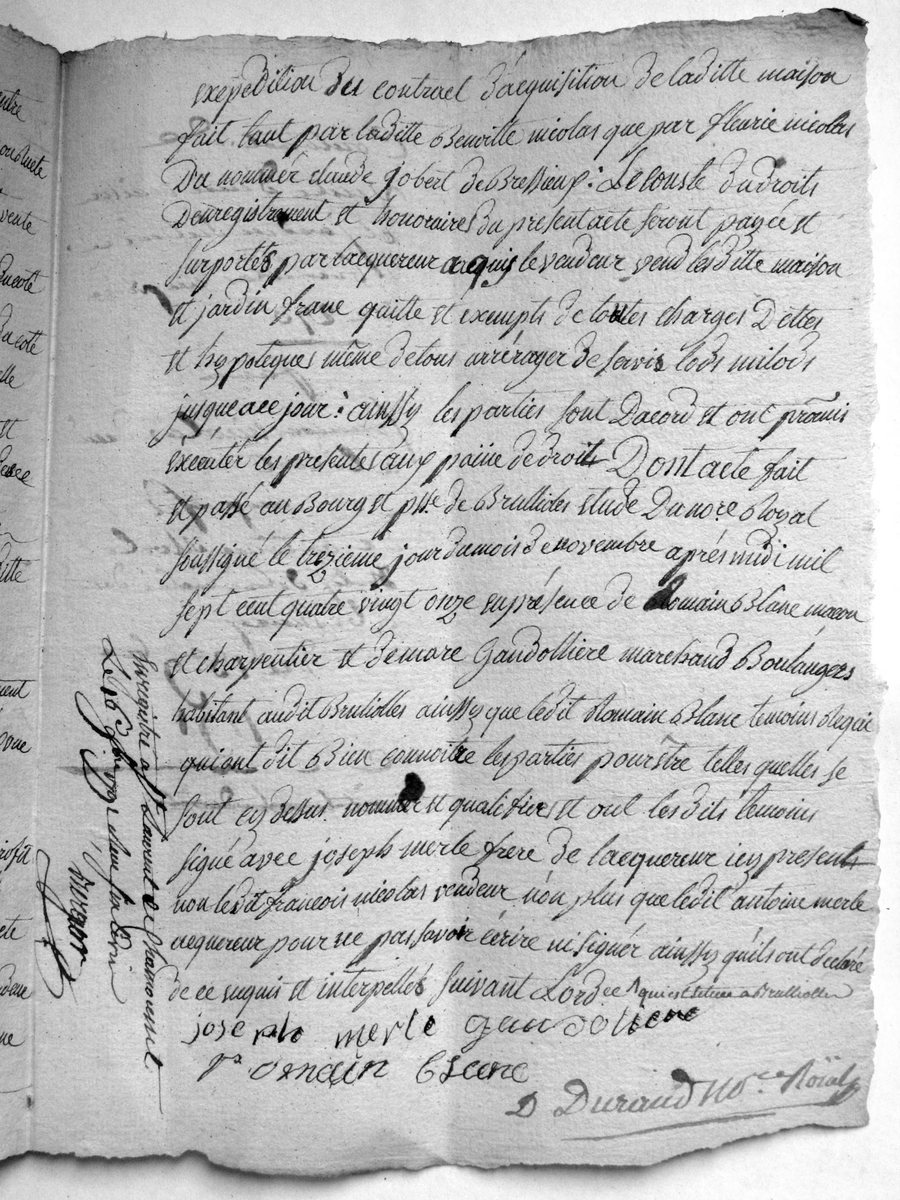 expédition des contract d'acquisition de laditte maison
fait tant par laditte Benoitte nicolas que par fleurie nicolas
Du nommé claude jobert de Bressieux: Le coust du droits
Denregistrement et honoraires du present acte seront payée et
surportés par lacquereur acquis le vendeur vend lesditte maison
et jardin franc quitte et exempts de toutes charges Dettes
et hypoteques même de tous arrérages de servis lods milods
jusque a ce jour: ainssy les parties sont Dacord et ont promis
éxécuter les presentes aux paine de droit Dont acte fait
et passé au Bourg et psse de Brullioles etude Du nore Royal
soussigné le trezième jour du mois de novembre après midi mil
sept cent quatre vingt onze en présence de Romain Blanc macon
et charpentier et de marc Gandollière marchand Boulangers
habitant audit Brullioles ainssy que ledit Romain Blanc temoins Requis
qui ont dit Bien connoitre les parties pour être telles quelles se
sont cy dessus nommée et qualifiées et ont les dits temoins
signé avec joseph merle frere de lacquereur icy present
non ledit françois nicolas vendeur non plus que ledit antoine merle
acquereur pour ne pas savoir écrire ni signér ainssy quils ont declaré
de ce enquis et interpellés suivant Lordce qui est située a Brulliolles
joseph merle gandoliere
romain blanc
D Durand No.re Roïal
Enregistré a St Laurent de Chamousset
Le 26 9bre 1791